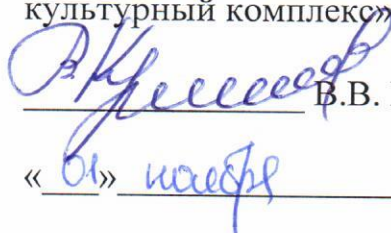 культурный комплекс»
В.В.
«01» ноября